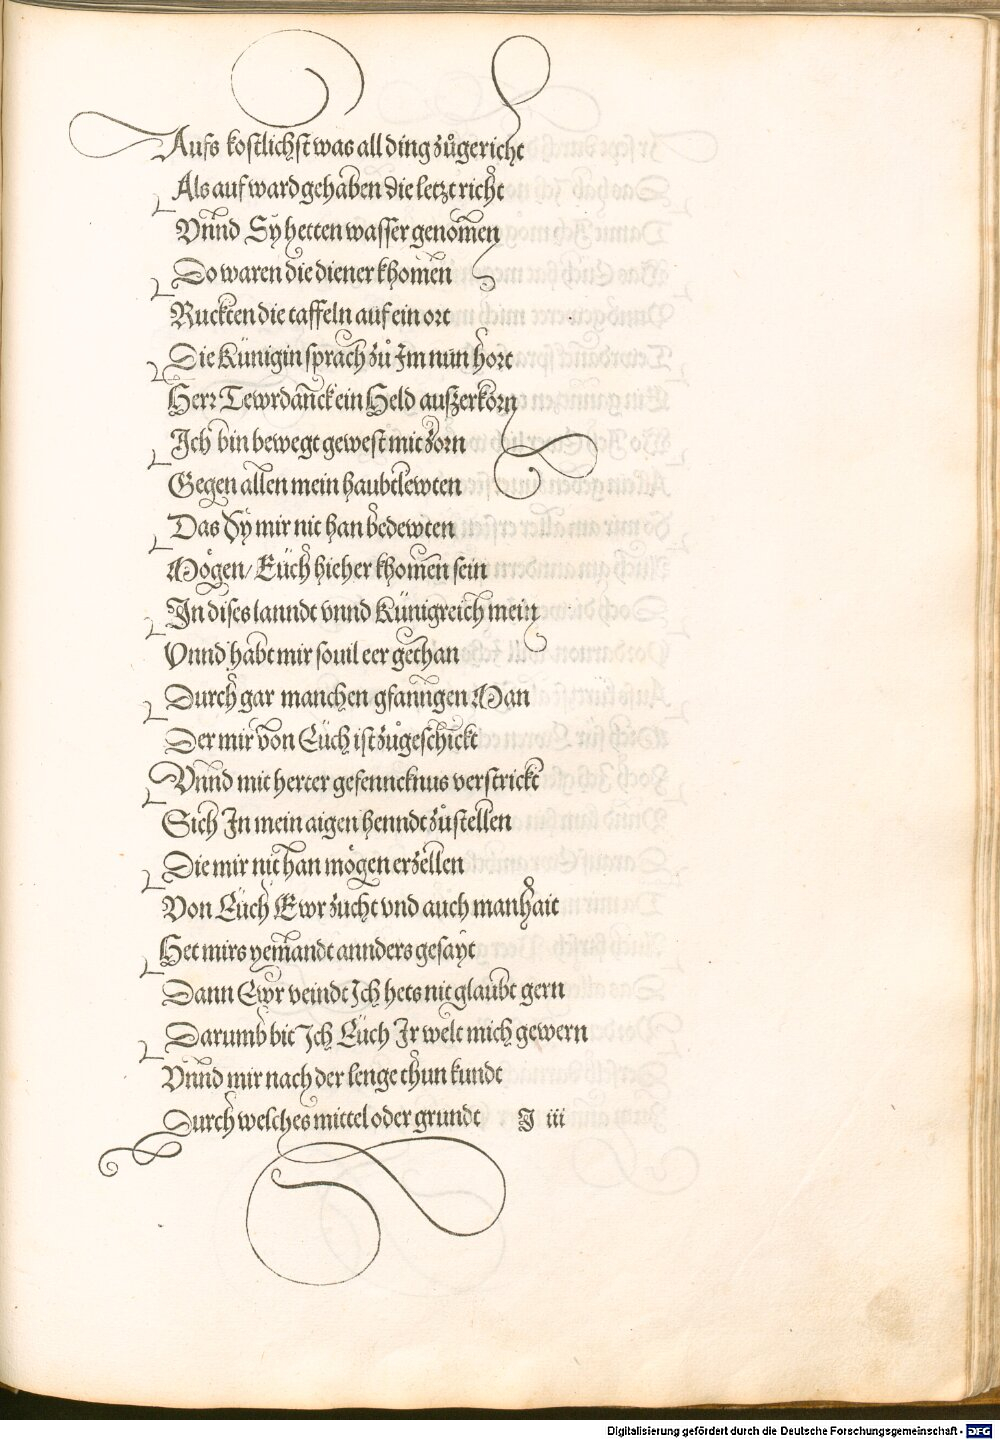 Aufs kostlichst was all ding zůgericht
Als auf ward gehaben die letzt richt
Vnnd Sy hetten wasser genomen
Do waren die diener khomen
Ruckten die taffeln auf ein ort
Die Künigin sprach zů Im nun hort
Herr Tewrdanck ein Held außzerkorn
Ich bin bewegt gewest mit zorn
Gegen allen mein haubtlewten
Das Sy mir nit han bedewten
Mögen/ Eüch hieher khomen sein
In dises lanndt vnnd Künigreich mein
Vnnd habt mir souil eer gethan
Durch gar manchen gfanngen Man
Der mir von Eüch ist zůgeschickt
Vnnd mit herter gefenncknus verstrickt
Sich In mein aigen henndt zůstellen
Die mir nit han mögen erzellen
Von Eüch Ewr zucht vnd auch manhait
Het mirs yemandt annders gesayt
Dann Ewr veindt Ich hets nit glaubt gern
Darumb bit Ich Eüch Ir welt mich gewern
Vnnd mir nach der lenge thun kundt
Durch welches mittel oder grundt I iii
Digitalisierung gefördert durch die Deutsche Forschungsgemeinschaft - DFG